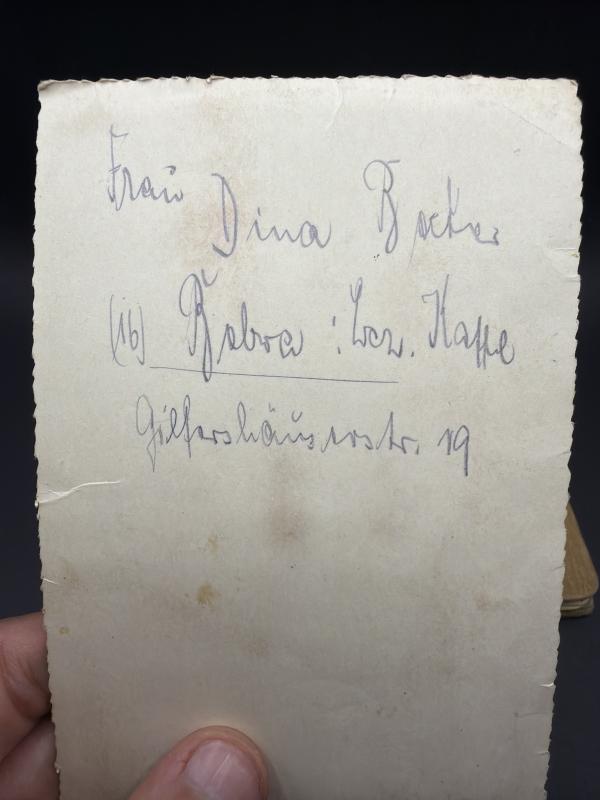 Frau
Dina Becker
(16) Bebra : Bez. Kassel
Gilfershäuserstr. 19